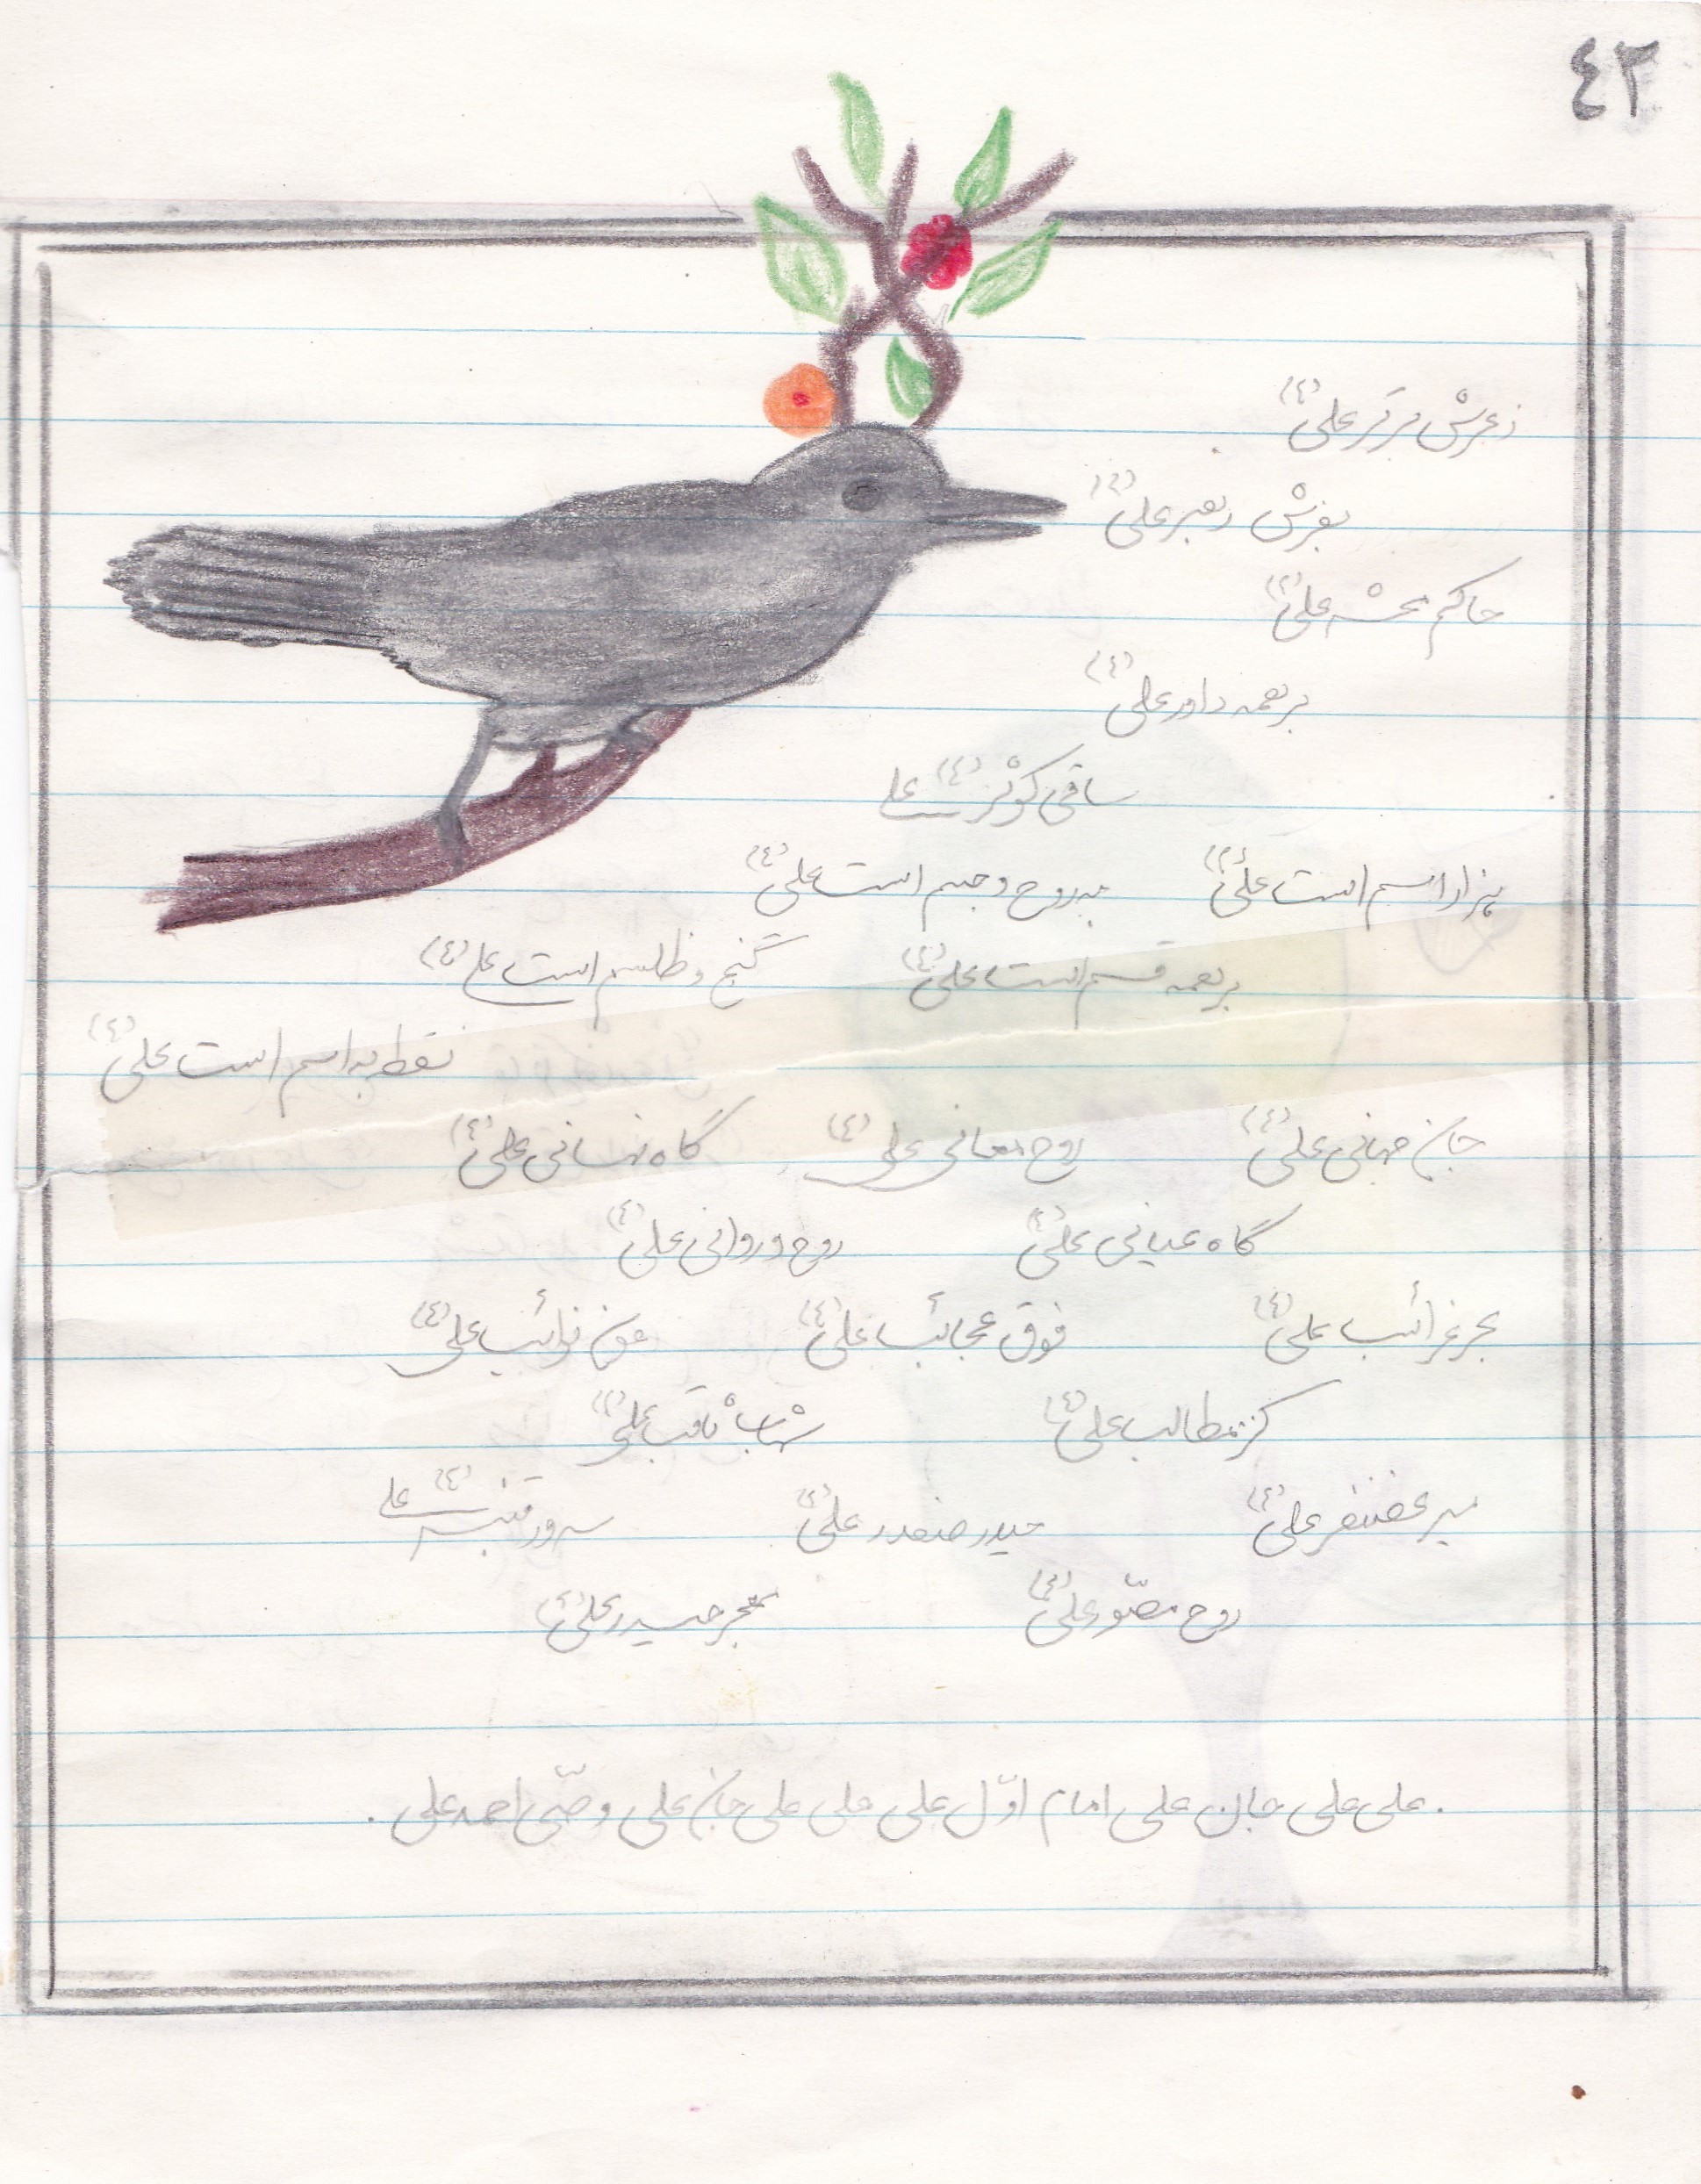 ٤٣
ز عرش برتر علی (ع)
بفرش رهبر علی (ع)
حاکم محشر علی (ع)
بر همه داور علی (ع)
ساقی کوثر علی (ع)
هزار اسم است علی (ع) به روح و جسم است علی (ع)
بر همه قسم است علی (ع) گنج و طلسم است علی (ع)
نقطه به اسم است علی (ع)
جان جهانی علی (ع) روح معانی علی (ع) گاه نهانی علی (ع)
گاه عیانی علی (ع) روح و روانی علی (ع)
بحر غرائب علی (ع) فوق عجائب علی (ع) عون نوائب علی (ع)
کنز مطالب علی (ع) شهاب ثاقب علی (ع)
میر غضنفر علی (ع) حیدر صفدر علی (ع) سرور قنبر علی (ع)
روح مصوّر علی (ع) حیدر علی (ع)
. علی علی جان علی امام اوّل علی علی علی جان علی وصّی احمد علی .